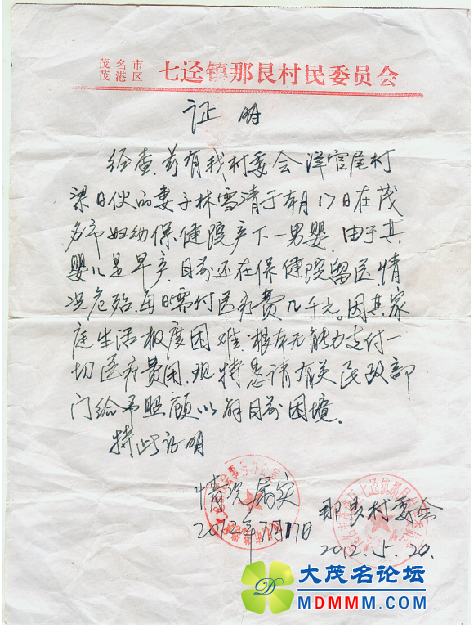 茂名市
茂港区 七迳镇那艮村民委员会
证明
经查, 兹有我村委会泽官尾村
梁日伙的妻子林雪清于本月17日在茂
名市妇幼保健院产下一男婴.由于其
婴儿是早产,目前还在保健院留医,情
况危殆,每日需付医疗费几千元。因其家
庭生活极度困难,根本无能力支付一
切医疗费用,现特恳请有关民政部
门给予照顾以解目前困境。
特此证明
情况属实
那艮村委会
2012年7月17日
2012.5.20.
大茂名论坛
MDMMM.COM